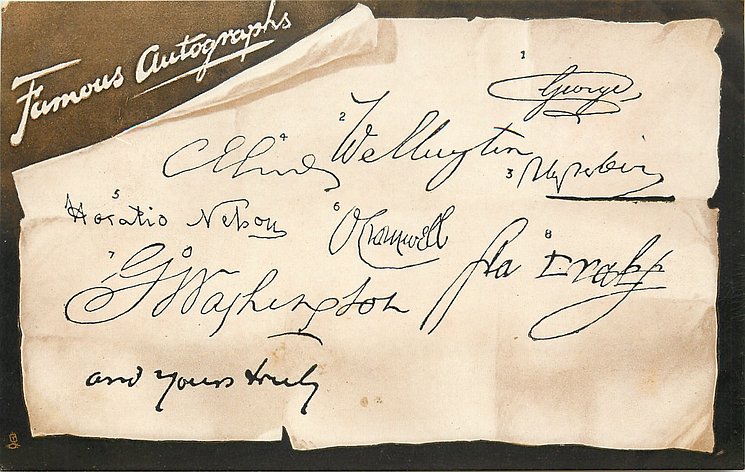 Famous Autographs
1
George
2
Wellington
3
4
5
Horatio Nelson
6
O Cromwell
7
G Washington
8
fra Drake
and yours truly